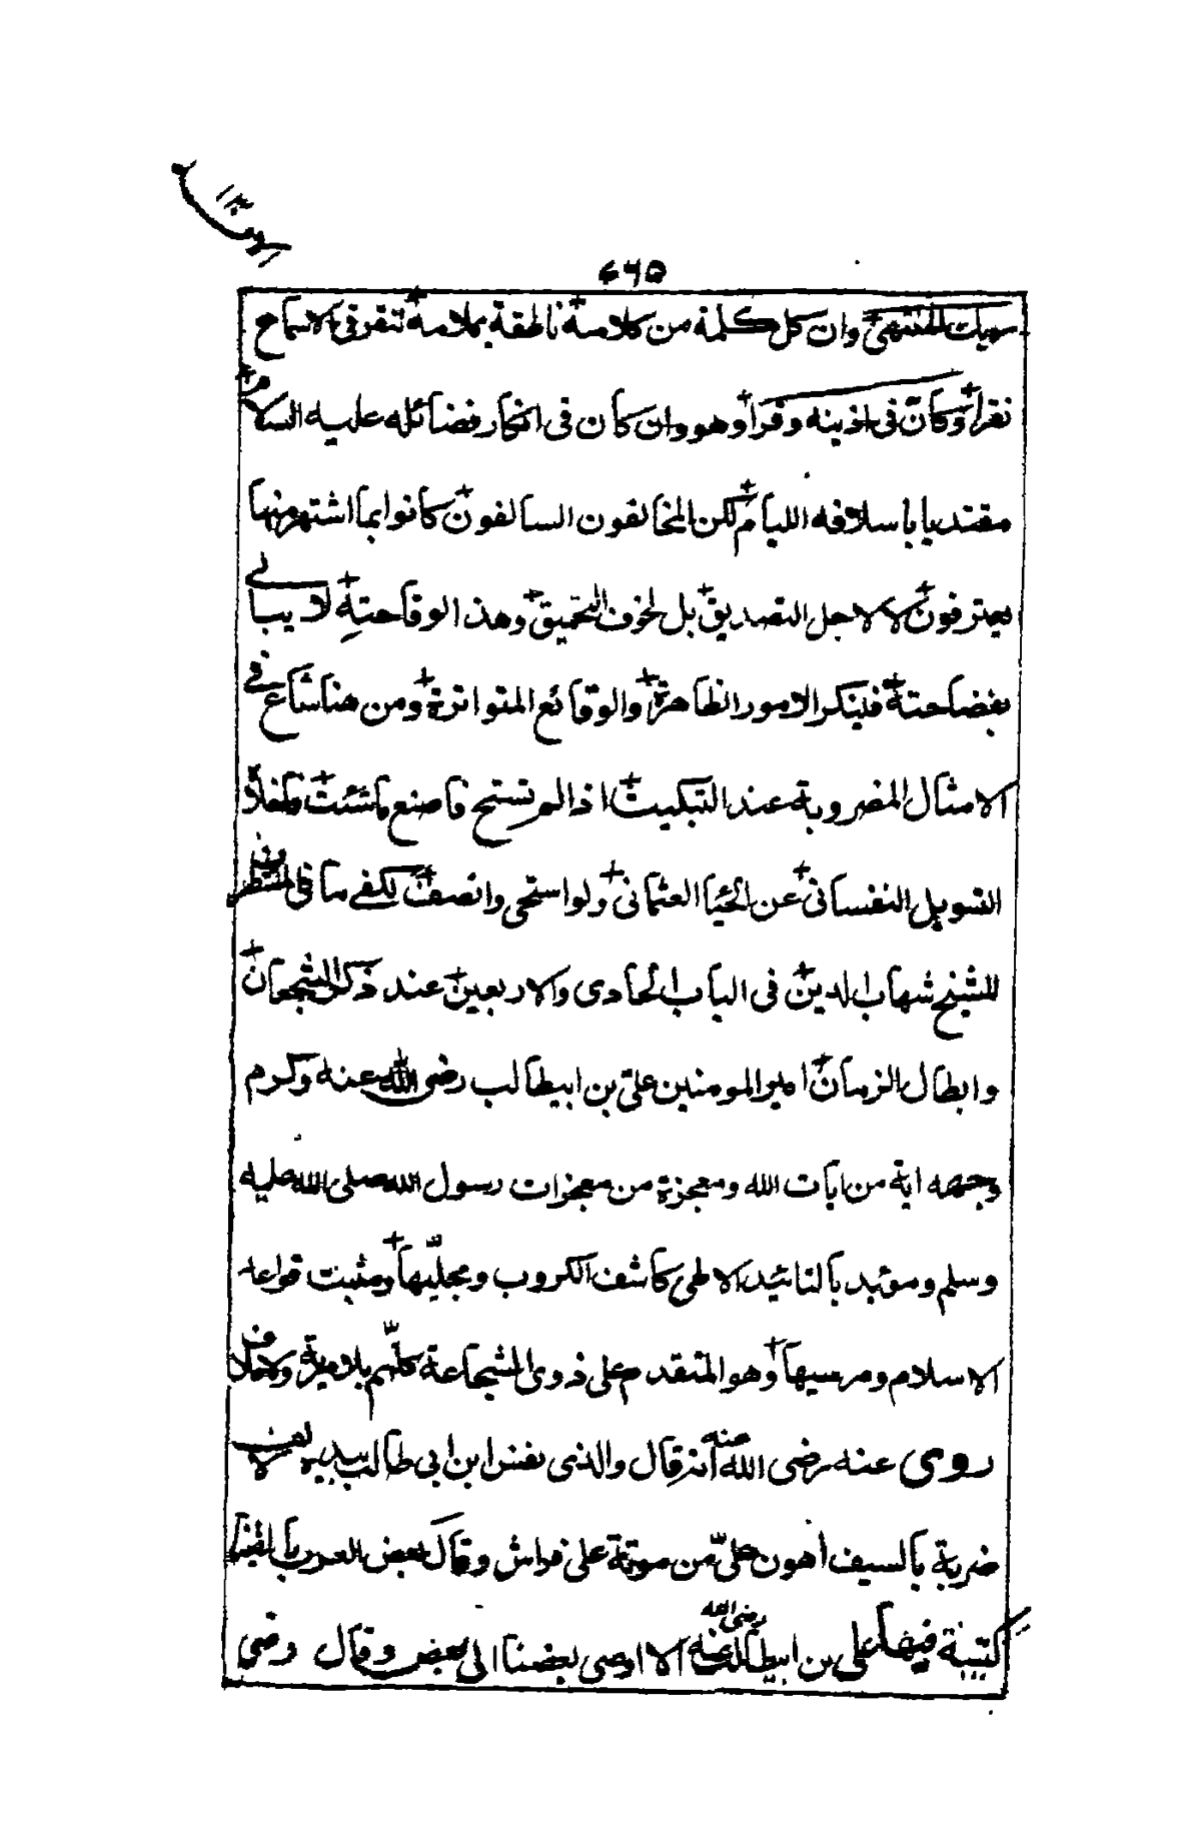 ١٣
٤٦٥
وان كل كلمة من كلامه ناطقة بملامه تنقر فى الاسماع
نقرا وكان فى اذينه وقرا وهو وان كان فى انكار فضائله عليه السلام
مقتديا باسلافه الليام لكن المخالفون السالفون كانوا بما اشتهر منها
يعترفون لا لاجل التصديق بل لخوف التحميق وهذ الوقاحته لا يبالى
بفضاحته فلينكر الامور الظاهرة والوقائع المتواترة ومن هنا شاع فى
الامثال المضروبة عند التبكيت اذا لم تستح فاصنع ما شئت
التسويل النفسانى عن الحيا العثمانى ولو استحى وانصف لكفے ما فى المستطرف
للشيخ شهاب الدين فى الباب الحادى والاربعين عند ذكر الشجعان
وابطال الزمان امير المومنين علىّ بن ابيطالب رضى الله عنه وكرم
وجهه اية من ايات الله ومعجزة من معجزات رسول الله صلى الله عليه
وسلم ومؤيد بالتائيد الالهى كاشف الكروب ومجلّيها ومثبت قواعد
الاسلام ومرسيها وهو المتقدم على ذوى الشجاعة كلّهم بلا مرية ولا خلاف
روى عنه رضى الله عنه انه قال والذى نفس ابن ابى طالب بيده لالف
ضربة بالسيف اهون علىّ من موتة على فراش وقال بعض العرب ما لقينا
كتيبة فيها على بن ابيطالب رضى الله عنه الا اوصى بعضنا الى بعض وقال رضى